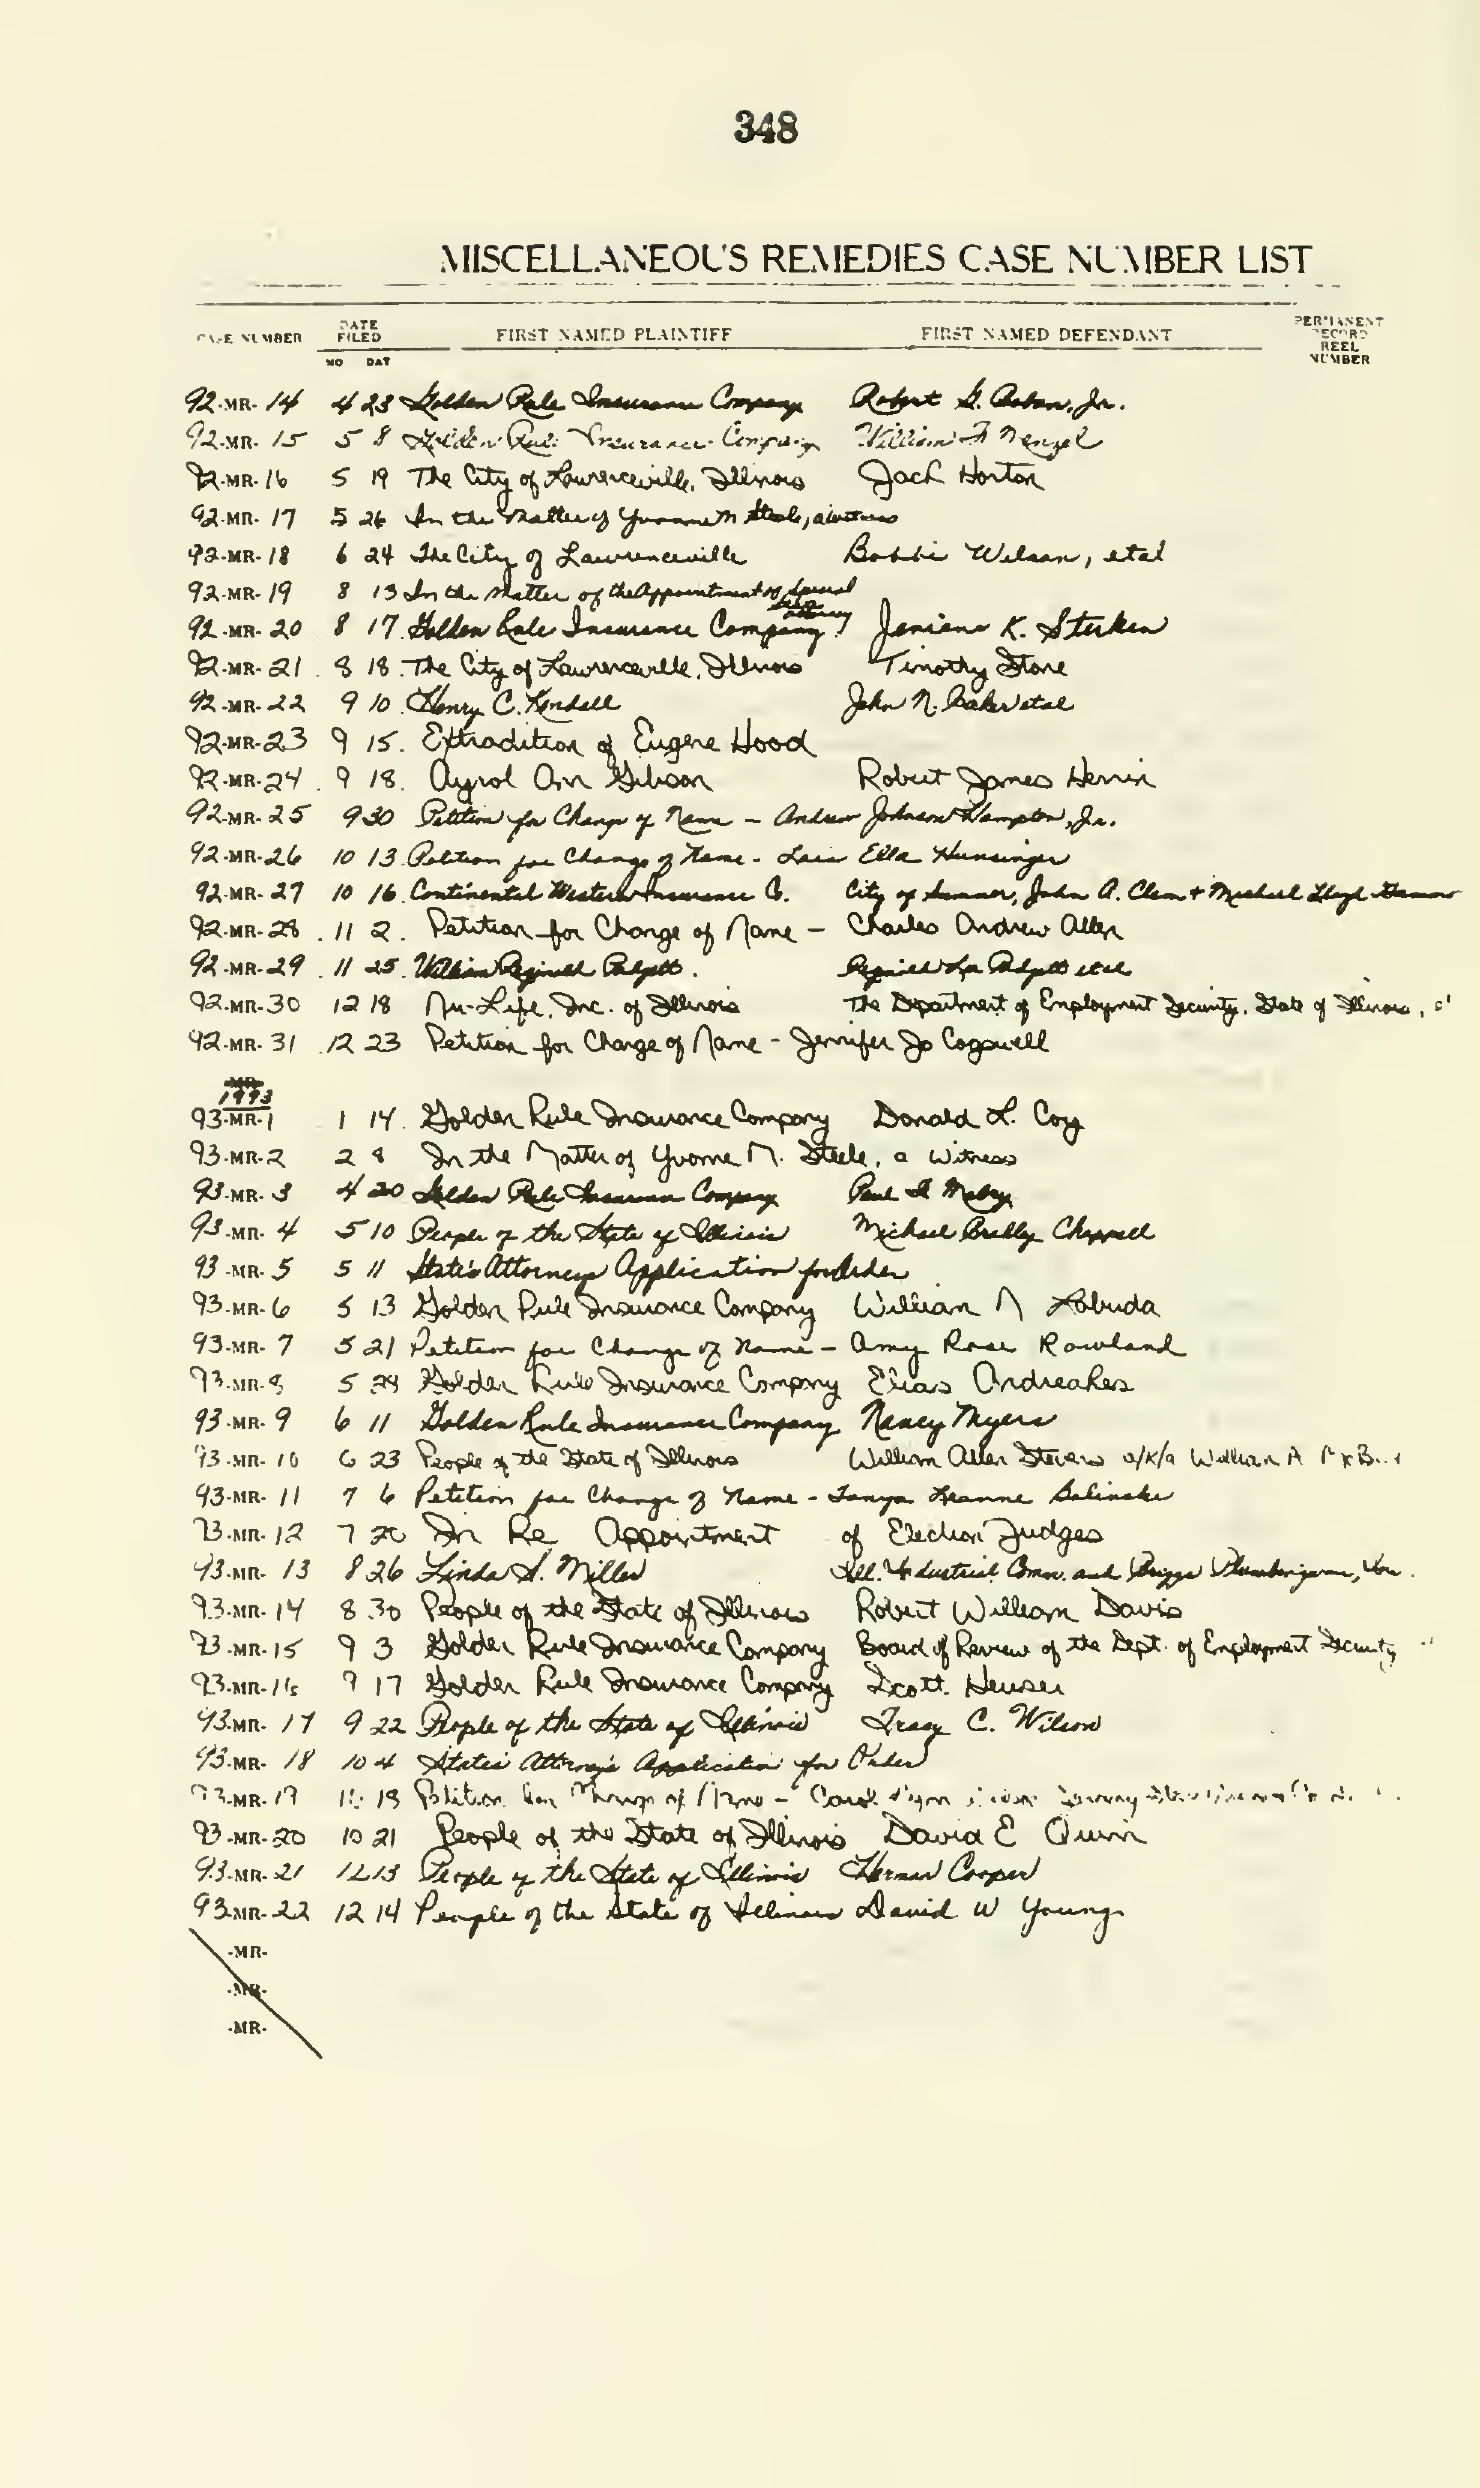 348
MISCELLANEOUS REMEDIES CASE NUMBER LIST
CASE NUMBER DATE FILED FIRST NAMED PLAINTIFF FIRST NAMED DEFENDANT PERMANENT RECORD REEL NUMBER
MO DAY
92-MR-14 4 23 Golden Rule Insurance Company Robert G. Jr.
92-MR-15 5 8 Golden Rule Insurance Company William F Nenzel
92-MR-16 5 19 The City of Lawrenceville, Illinois Jack Horton
92-MR-17 5 26 In the Matter of Yvonne M Steele, a witness
92-MR-18 6 24 The City of Lawrenceville Bobbie Wilson, etal
92-MR-19 8 13 In the Matter of the Appointment of Special
92-MR-20 8 17 Golden Rule Insurance Company K. Sterken
92-MR-21 8 18 The City of Lawrenceville, Illinois Timothy Stone
92-MR-22 9 10 Henry C. Kendall John N. Baker etal
92-MR-23 9 15. Extradition of Eugene Hood
92-MR-24 9 18. Ayrol Ann Gibson Robert James Herrin
92-MR-25 9 30 Petition for Change of Name - Andrew Johnson Hampton, Jr.
92-MR-26 10 13 Petition for Change of Name - Lois Ella Hunsinger
92-MR-27 10 16 Continental Western Insurance Co. City of Sumner, John A. Clem + Michael Lloyd
92-MR-28 11 2. Petition for Change of Name - Charles Andrew Allen
92-MR-29 11 25 William Reginald Padgett. Reginald Padgett etal
92-MR-30 12 18 Nu-Life, Inc. of Illinois The Department of Employment Security, State of Illinois,
92-MR-31 12 23 Petition for Change of Name - Jennifer Jo Cogswell
MR
1993
93-MR-1 1 14 Golden Rule Insurance Company Donald L. Coy
93-MR-2 2 8 In the Matter of Yvonne M. Steele, a Witness
93-MR-3 4 20 Golden Rule Insurance Company Paul Mabry
93-MR-4 5 10 People of the State of Illinois Michael Bradley Chappell
93-MR-5 5 11 State's Attorneys Application for Order
93-MR-6 5 13 Golden Rule Insurance Company William M Labuda
93-MR-7 5 21 Petition for Change of Name - Amy Rose Rowland
93-MR-8 5 24 Golden Rule Insurance Company Elias Andreakes
93-MR-9 6 11 Golden Rule Insurance Company Nancy Myers
93-MR-10 6 23 People of the State of Illinois William Allen Stevens a/k/a William A
93-MR-11 7 6 Petition for Change of Name - Tanya Leanne Balinski
93-MR-12 7 20 In Re Appointment of Election Judges
93-MR-13 8 26 Linda S. Miller Ill. Industrial Comm. and Briggs Plumbingware, Inc.
93-MR-14 8 30 People of the State of Illinois Robert William Davis
93-MR-15 9 3 Golden Rule Insurance Company Board of Review of the Dept. of Employment Security
93-MR-16 9 17 Golden Rule Insurance Company Scott Heuser
93-MR-17 9 22 People of the State of Illinois Tracy C. Wilson
93-MR-18 10 4 State's Attorney's Application for Order
93-MR-19 18 Petition of Name - Carol
93-MR-20 10 21 People of the State of Illinois David E Quinn
93-MR-21 12 13 People of the State of Illinois Herman Cooper
93-MR-22 12 14 People of the State of Illinois David W Young
-MR-
-MR-
-MR-